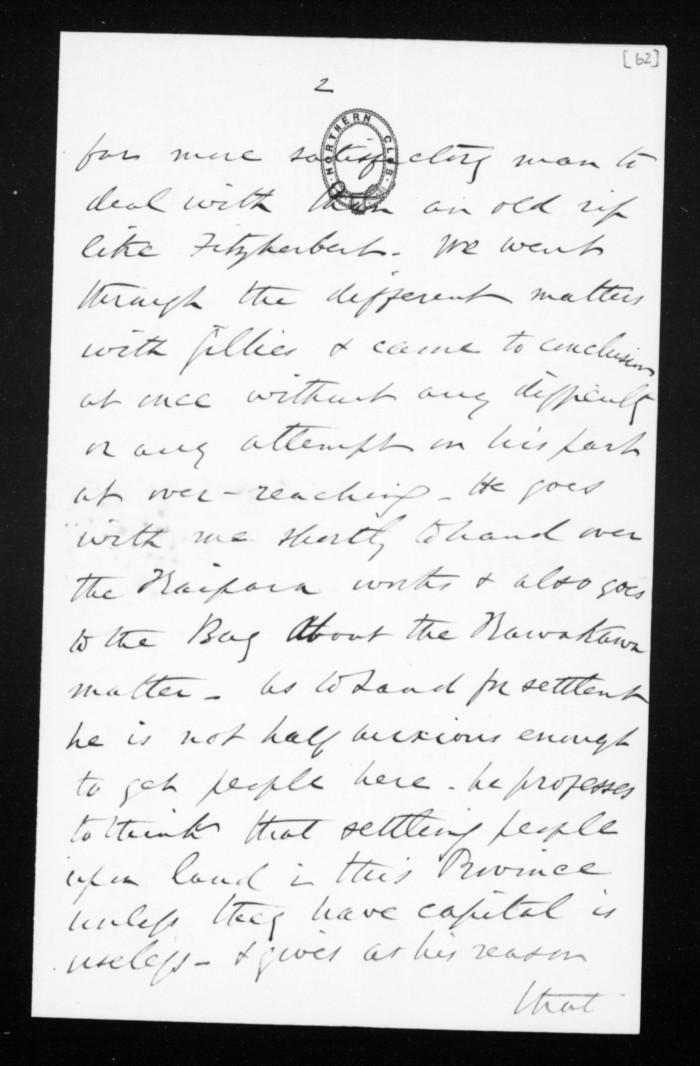 [62]
2
NORTHERN CLUB
far more satisfactory man to
deal with than an old rip
like Fitzherbert. We went
through the different matters
with Gillies & came to conclusions
at once without any difficulty
or any attempt on his part
at over-reaching. He goes
with me shortly to hand over
the Kaipara works & also goes
to the Bay about the Kawakawa
matter. As to Land for settlent
he is not half anxious enough
to get people here. he professes
to think that settling people
upon land in this Province
unless they have capital is
useless - & gives as his reason
that